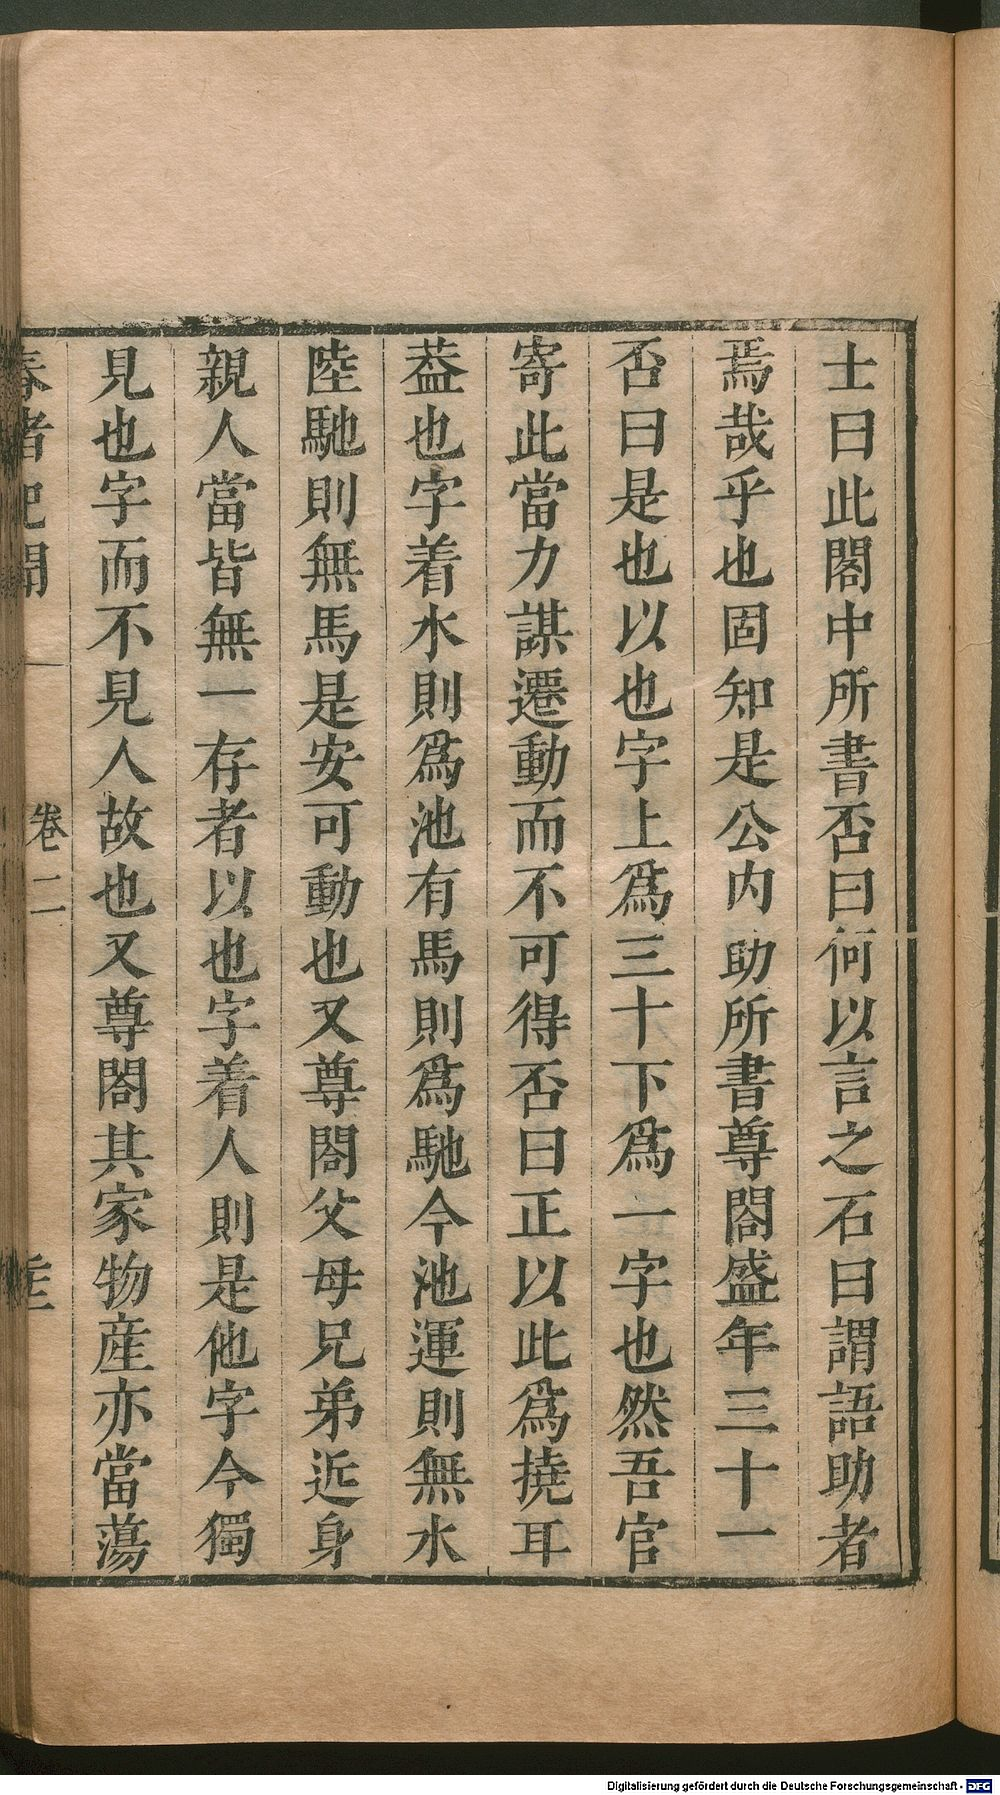 士曰此閣中所書否曰何以言之石曰謂語助者
焉哉乎也固知是公内助所書尊閤盛年三十一
否曰是也以也字上爲三十下爲一字也然吾官
寄此當力謀遷動而不可得否曰正以此爲撓耳
葢也字着水則爲池有馬則爲馳今池運則無水
陸馳則無馬是安可動也又尊閤父母兄弟近身
親人當皆無一存者以也字着人則是他字今獨
見也字而不見人故也又尊閤其家物產亦當蕩
春渚紀聞 卷二
Digitalisierung gefördert durch die Deutsche Forschungsgemeinschaft - DFG